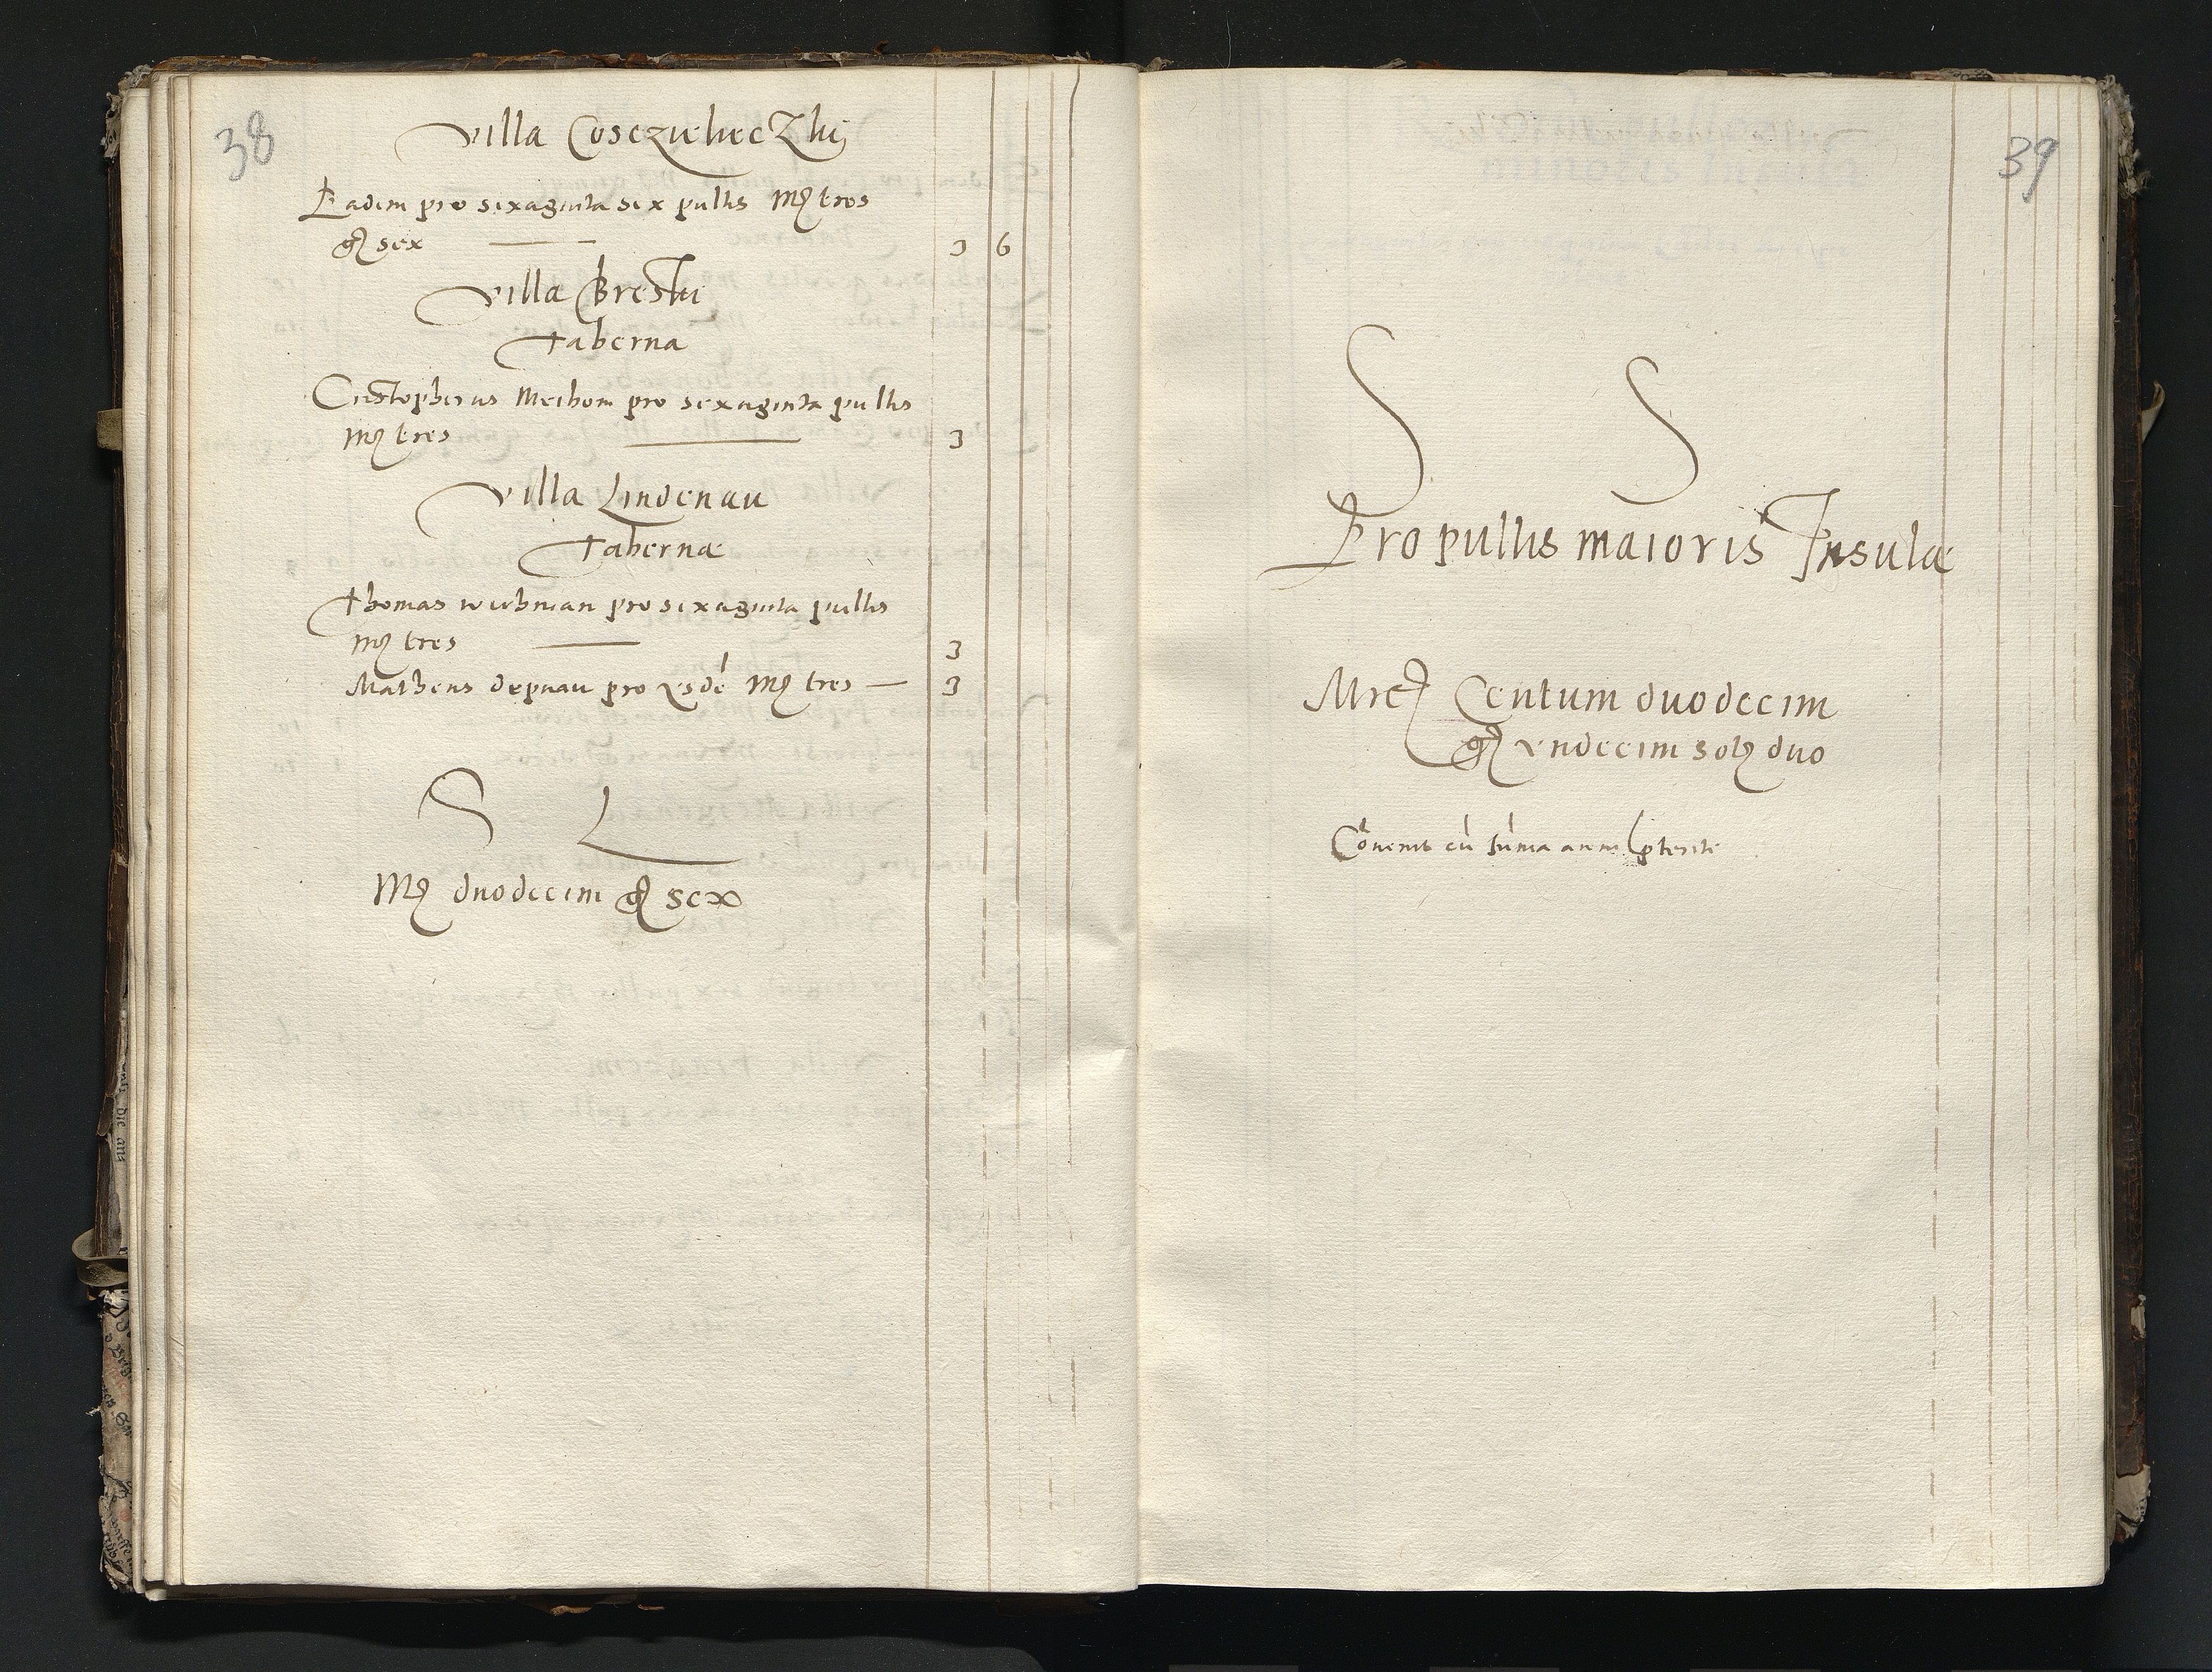 38
Villa Cosczieleczki
Eadem pro sexaginta sex pullis Mr tres
gr sex 3 6
Villa Bresku
Taberna
Cristopherus Meihom pro sexaginta pullis
Mr tres 3
Villa Lindenau
Taberna
Thomas wichman pro sexaginta pullis
Mr tres 3
Matheus depnau pro xsdē Mr tres 3
S L
Mr duodecim gr sex
39
S S
Pro pullis maioris Insulæ
Mrc Centum duodecim
gr vndecim sol duo
Cōuenit cū sūma anni pterite